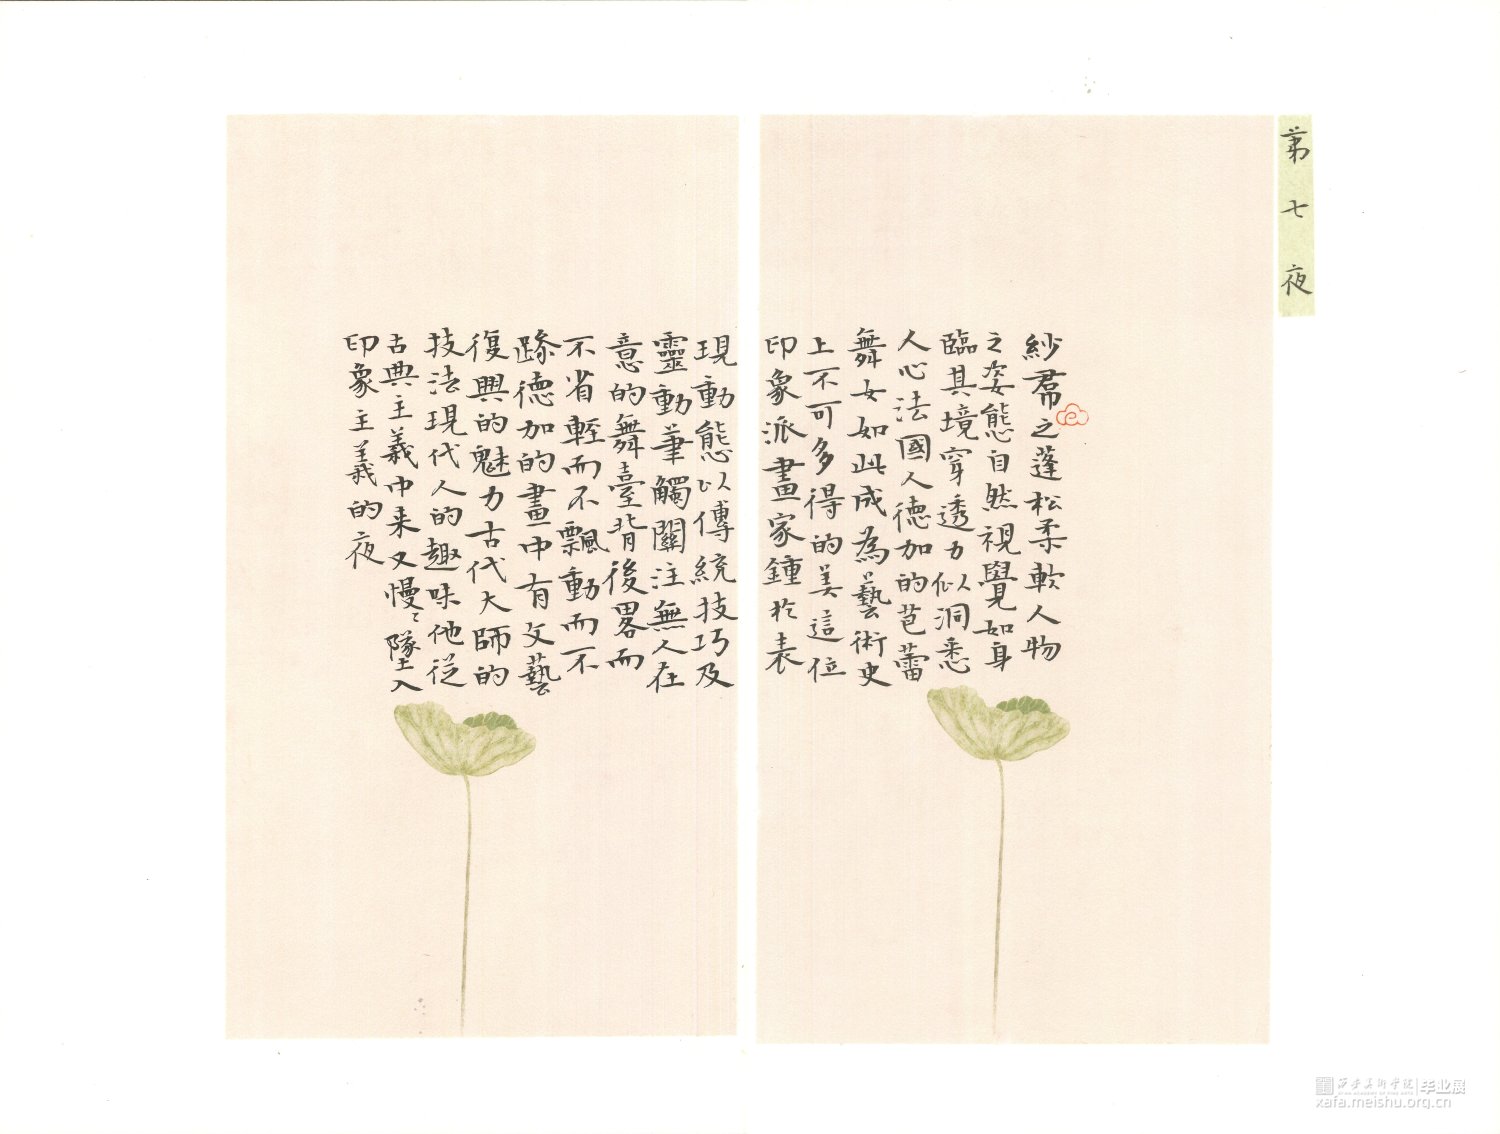 第七夜
紗帬之蓬松柔軟人物
之姿態自然視覺如身
臨其境穿透力似洞悉
人心法國人德加的芭蕾
舞女如此成為藝術史
上不可多得的美這位
印象派畫家鍾於表
現動態以傳統技巧及
靈動筆觸關注無人在
意的舞臺背後畧而
不省輕而不飄動而不
跡德加的畫中有文藝
復興的魅力古代大師的
技法現代人的趣味他從
古典主義中来又慢〻墜入
印象主義的夜
西安美術學院 毕业展
xafa.meishu.org.cn